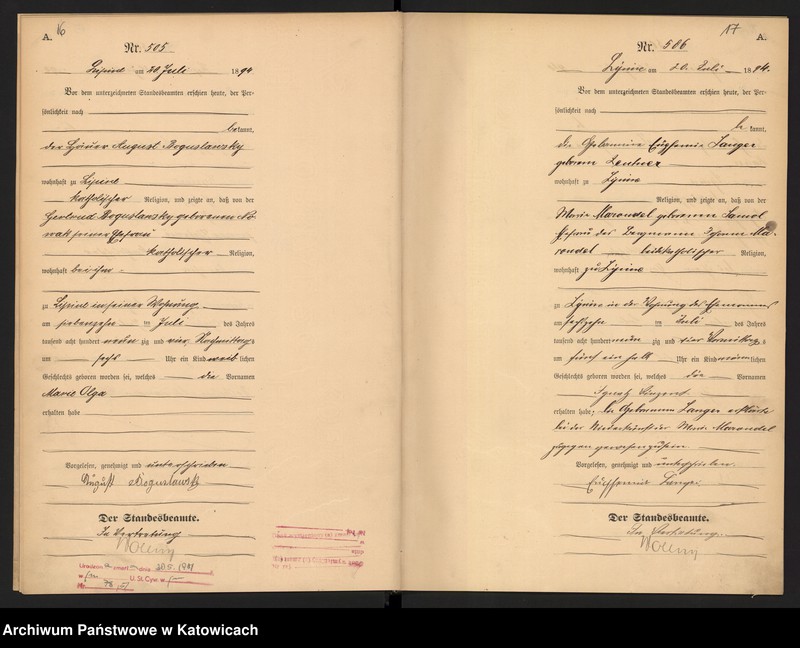 16
A.
Nr. 505
Lipine am 20 Juli 1894
Vor dem unterzeichneten Standesbeamten erschien heute, der Per-
sönlichkeit nach
bekannt,
der Häuer August Boguslawsky
wohnhaft zu Lipine
katholischer Religion, und zeigte an, daß von der
Boguslawsky geborenen No-
wak seiner Ehefrau
katholischer Religion,
wohnhaft bei ihm
zu Lipine in seiner Wohnung
am siebenzehn ten Juli des Jahres
tausend acht hundert neun zig und vier, Nachmittags
um sechs Uhr ein Kind weiblichen
Geschlechts geboren worden sei, welches die Vornamen
Marie Olga
erhalten habe
Vorgelesen, genehmigt und unterschrieben
August Boguslawski
Der Standesbeamte.
In Vertretung
17
A.
Nr. 506
Lipine am 20. Juli 1894.
Vor dem unterzeichneten Standesbeamten erschien heute, der Per-
sönlichkeit nach
bekannt,
die Hebamme Euphemie Langer
geborene
wohnhaft zu Lipine
Religion, und zeigte an, daß von der
Marie Marondel geborenen
Ehefrau des Bergmann Ma-
rondel beide katholischer Religion,
wohnhaft zu Lipine
zu Lipine in der Wohnung des Ehemannes
am sechszehn ten Juli des Jahres
tausend acht hundert neun zig und vier Vormittags
um fünf ein halb Uhr ein Kind männlichen
Geschlechts geboren worden sei, welches die Vornamen
Ignatz Vinzent
erhalten habe; Die Hebamme Langer erklärte
bei der Niederkunft der Marie Marondel
zugegen gewesen zu sein.
Vorgelesen, genehmigt und unterschrieben.
Euphemie Langer
Der Standesbeamte.
In Vertretung
Archiwum Państwowe w Katowicach